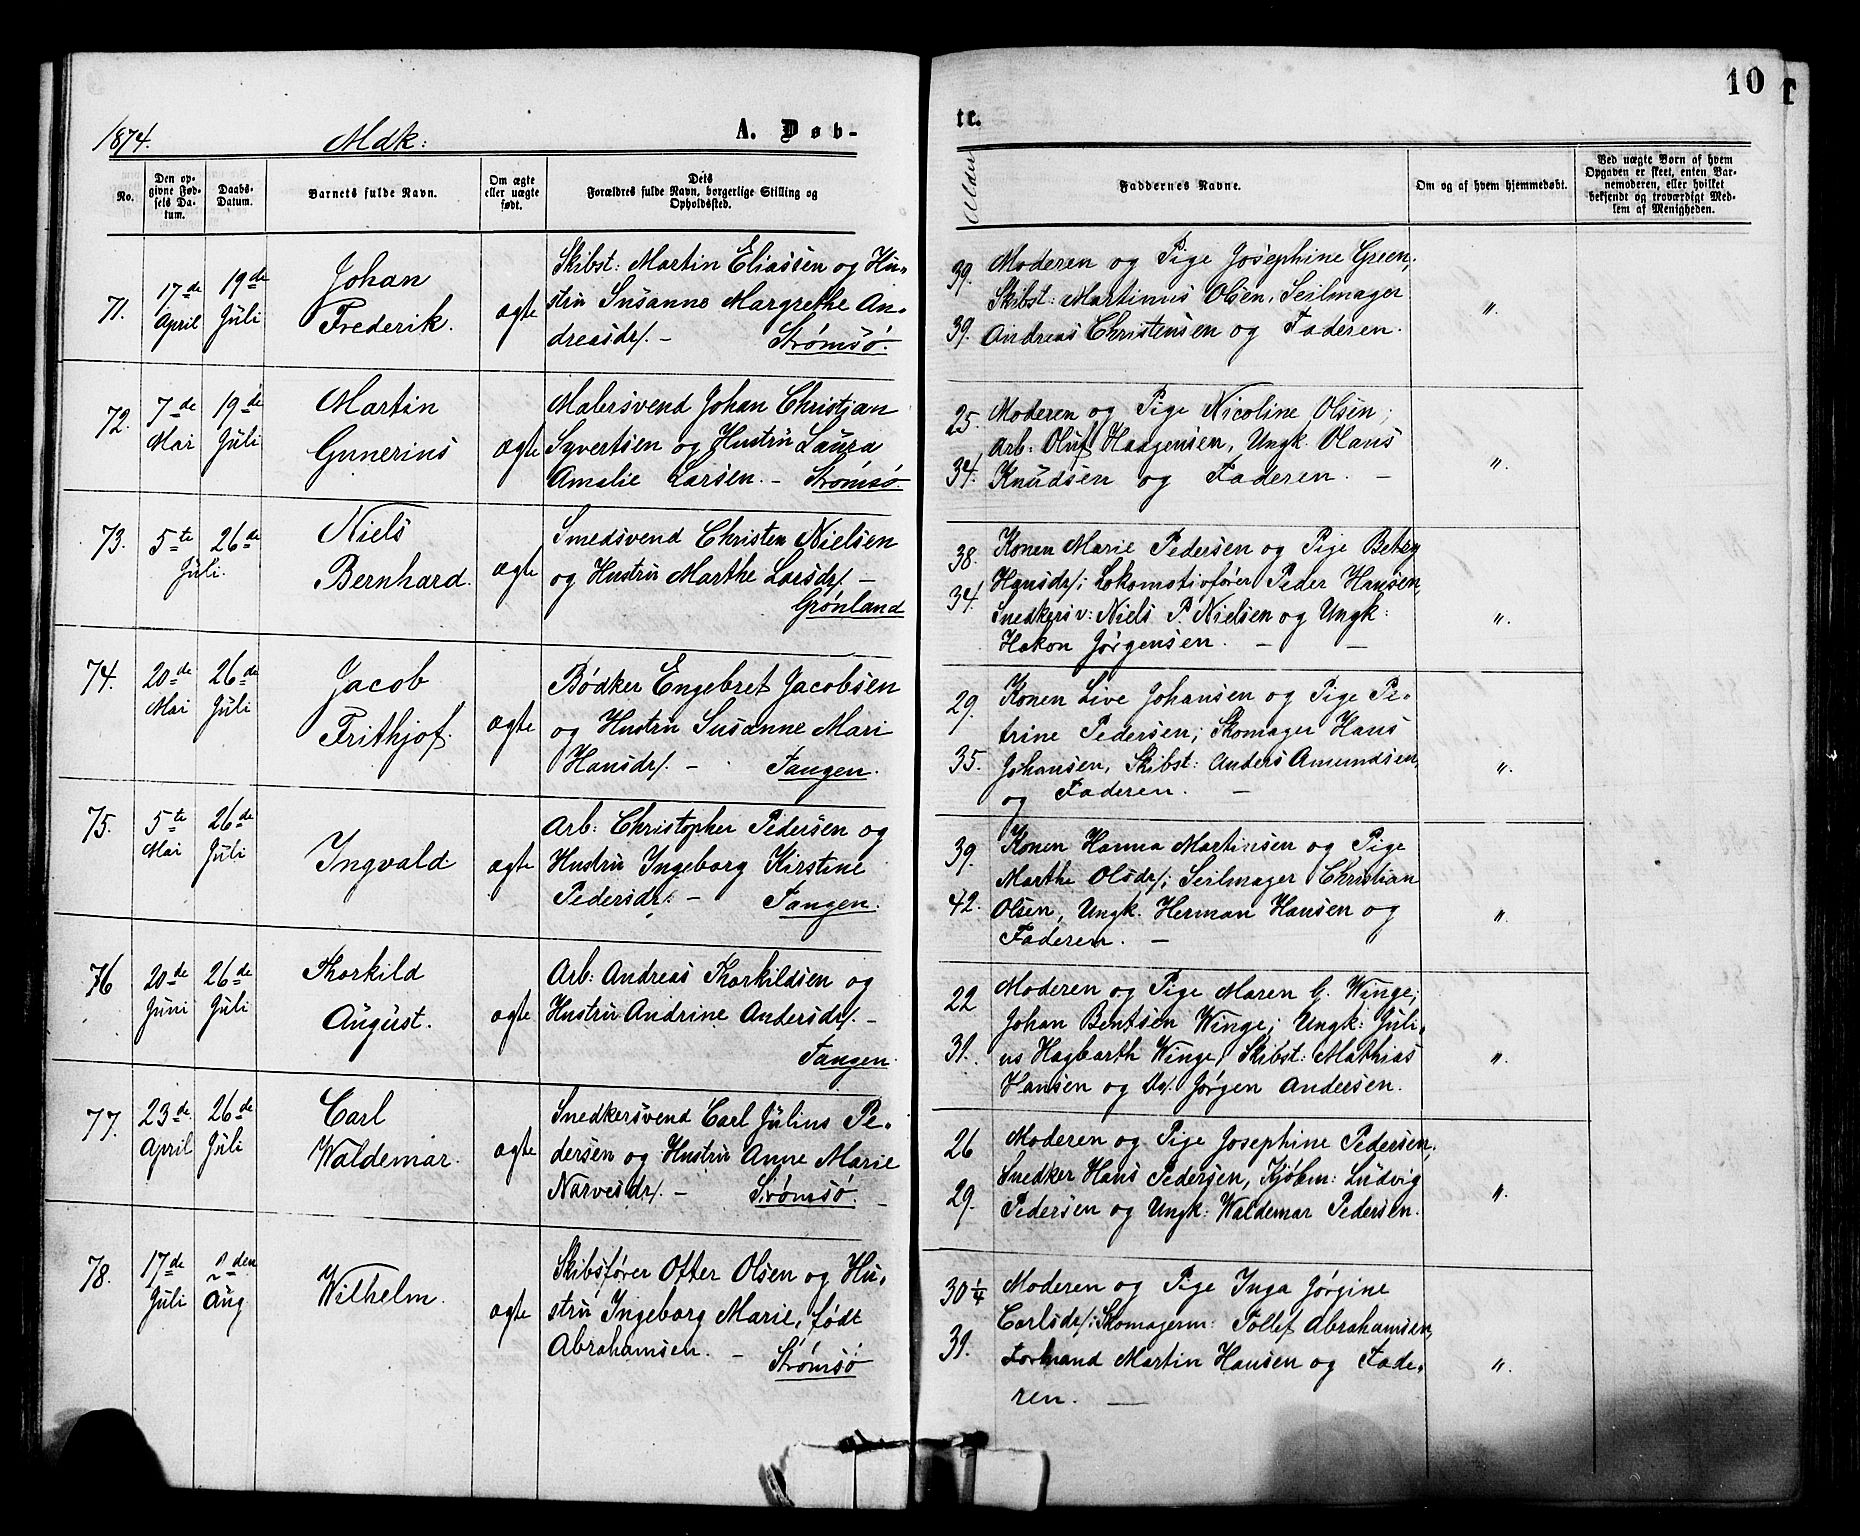 10
1874.
Mdk:
A. Døb-
te.
No.
Den op-
givne Fød-
sels Da-
tum.
Daabs-
Datum.
Barnets fulde Navn.
Om ægte
eller uægte
født.
Dets
Forældres fulde Navn, borgerlige Stilling og
Opholdssted.
Alder
Faddernes Navne.
Om og af hvem hjemmedøbt.
Ved uægte Børn af hvem
Opgaven er skeet, enten Bar-
nemoderen, eller hvilket
bekjendt og troværdigt Med-
lem af Menigheden.
71.
17de
April
19de
Juli
Johan
Frederik.
ægte
Skibst: Martin Eliassen og Hu-
stru Susanne Margrethe An-
dreasdr/. - Strømsø.
39.
39.
Moderen og Pige Josephine Green;
Skibst: Martinius Olsen, Seilmager
Andreas Christensen og Faderen.
".
72.
7de
Mai
19de
Juli
Martin
Gunerius
ægte
Malersvend Johan Christian
Syvertsen og Hustru Laura
Amalie Larsen. - Strømsø.
25.
34.
Moderen og Pige Nicoline Olsen;
Arb: Oluf Haagensen, Ungk. Olaus
Knudsen og Faderen. -
".
73.
5te
Juli.
26de
Niels
Bernhard.
ægte
Smedsvend Christen Nielsen
og Hustru Marthe Larsdr/. -
Grønland
38.
34.
Konen Marie Pedersen og Pige Betsy
Hansdr/; Lokomotivfører Peder Hansen,
Snedkersv: Niels P. Nielsen og Ungk:
Hakon Jørgensen. - -
".
74.
20de
Mai
26de
Juli
Jacob
Frithjof.
ægte
Bødker Engebret Jacobsen
og Hustru Susanne Mari
Hansdr/. - Tangen.
29.
35.
Konen Live Johansen og Pige Pe-
trine Pedersen; Skomager Hans
Johansen, Skibst: Anders Amundsen,
og Faderen. -
".
75.
5te
Mai
26de
Juli
Ingvald
ægte
Arb: Christopher Pedersen og
Hustru Ingeborg Kirstine
Pedersdr/. - Tangen.
39.
42.
Konen Hanna Martinsen og Pige
Marthe Olsdr/; Seilmager Christian
Olsen, Ungk. Herman Hansen og
Faderen. -
".
76
20de
Juni
26de
Juli
Thorkild
August.
ægte
Arb: Andreas Thorkildsen og
Hustru Andrine Andersdr/. -
Tangen.
22
31.
Moderen og Pige Maren C. Winge;
Johan Bentsen Winge; Ungk: Juli-
us Hagbarth Winge, Skibst: Mathias
Hansen og Do/. Jørgen Andersen.
".
77.
23de
April
26de
Juli
Carl
Waldemar.
ægte
Snedkersvend Carl Julius Pe-
dersen og Hustru Anne Marie
Narvesdr/. - Strømsø. -
26
29.
Moderen og Pige Josephine Pedersen,
Snedker Hans Pedersen, Kjøbm: Ludvig
Pedersen og Ungk: Waldemar Pedersen.
".
78.
17de
Juli
den
Aug
Wilhelm.
ægte
Skibsfører Otter Olsen og Hu-
stru Ingeborg Marie, født
Abrahamsen. - Strømsø
30 1/4
39.
Moderen og Pige Inga Jørgine
Carlsdr/; Skomagerm: Tollef Abrahamsen,
Formand Martin Hansen og Fade-
ren. -
".